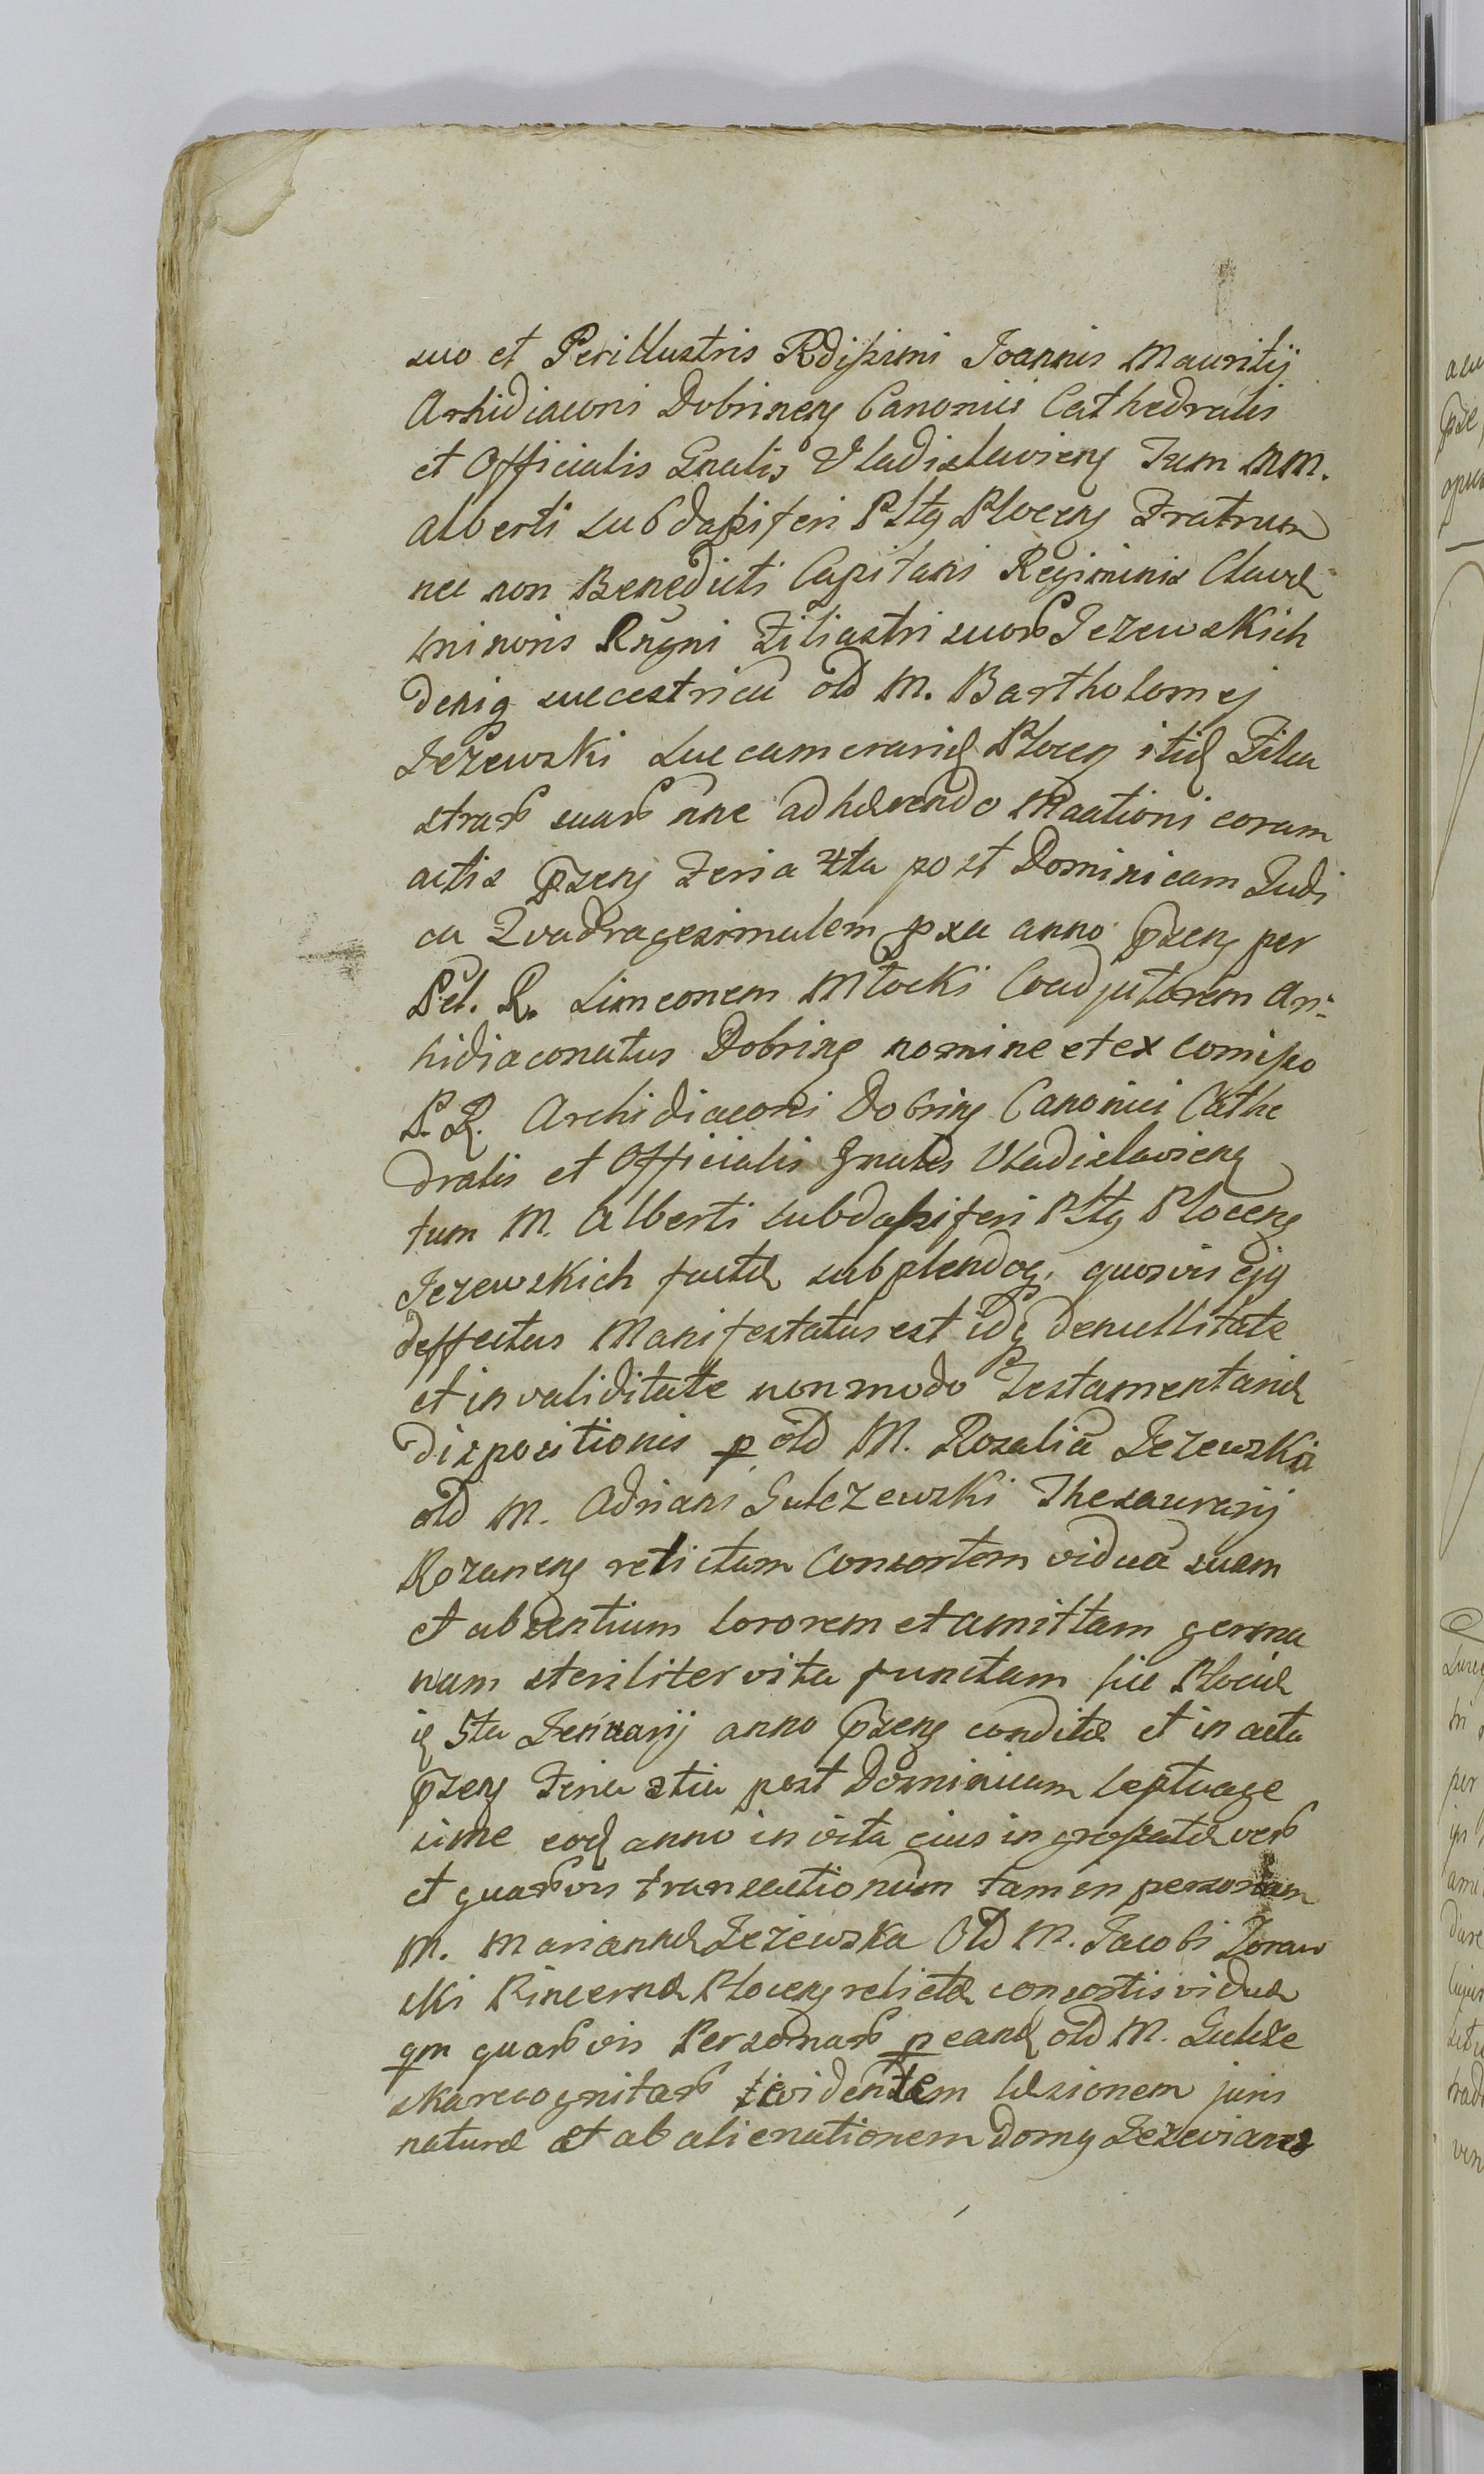 suo et Perillustris Rdissimi Joannis Mauritij
Arhidiaconi Dobrinens Canonici Cathedralis
et Officialis Gnalis Vladislaviens Tum MM.
Alberti subdapiferi Pltus Plocens Fratrum
nec non Benedicti Capitani Regiminis Clavæ
minoris Rngni Filiastri suorum Jezewskich
deniq succestricu old M. Bartholomei
Jezewski Succamerarij Plocens itid Filia
strarum suarum nne adhærendo Mtaationi coram
actis pssens Feria 4ta post Dominicam Judi
ca Qvadragesimalem pxa anno pssens per
Pel. R. Simeonem Młocki Coadjutorem Ar-
hidiaconatus Dobrins nomine et ex comisso
P. R. Archidiaconi Dobrins Canonici Cathe
dralis et Officialis Gnalis Vladislaviens
tum M. Alberti subdapiferi Pltus Plocens
Jezewskich factæ subplendoq. quosvis ejus
deffectus Manifestatus est idq de nullitate
et invaliditate non modo Testamentariæ
dispositionis p old M. Rosaliã Jezewska
old M. Adriani Gulczewski Thesaurarij
Rozanens relictam Consortem viduã suam
et absentium sororem et amittam germa
nam steriliter vita functam hic Plociæ
5ta Jenuarij anno pssens conditæ et in acta
pssens Feria 3tia post Dominicam Septuage
simæ eod anno in vita eius ingrossatæ verum
et quarumvis transactionum tam in personam
M. Mariannæ Jezewska Old M. Jacobi Zoraw
ski Pincernæ Plocens relictæ consortis viduæ
qm quarumvis Personarum p eand old M. Gulcze
ska recognitarum evidentem læsionem juris
naturæ et abalienationem domus Jezevianæ